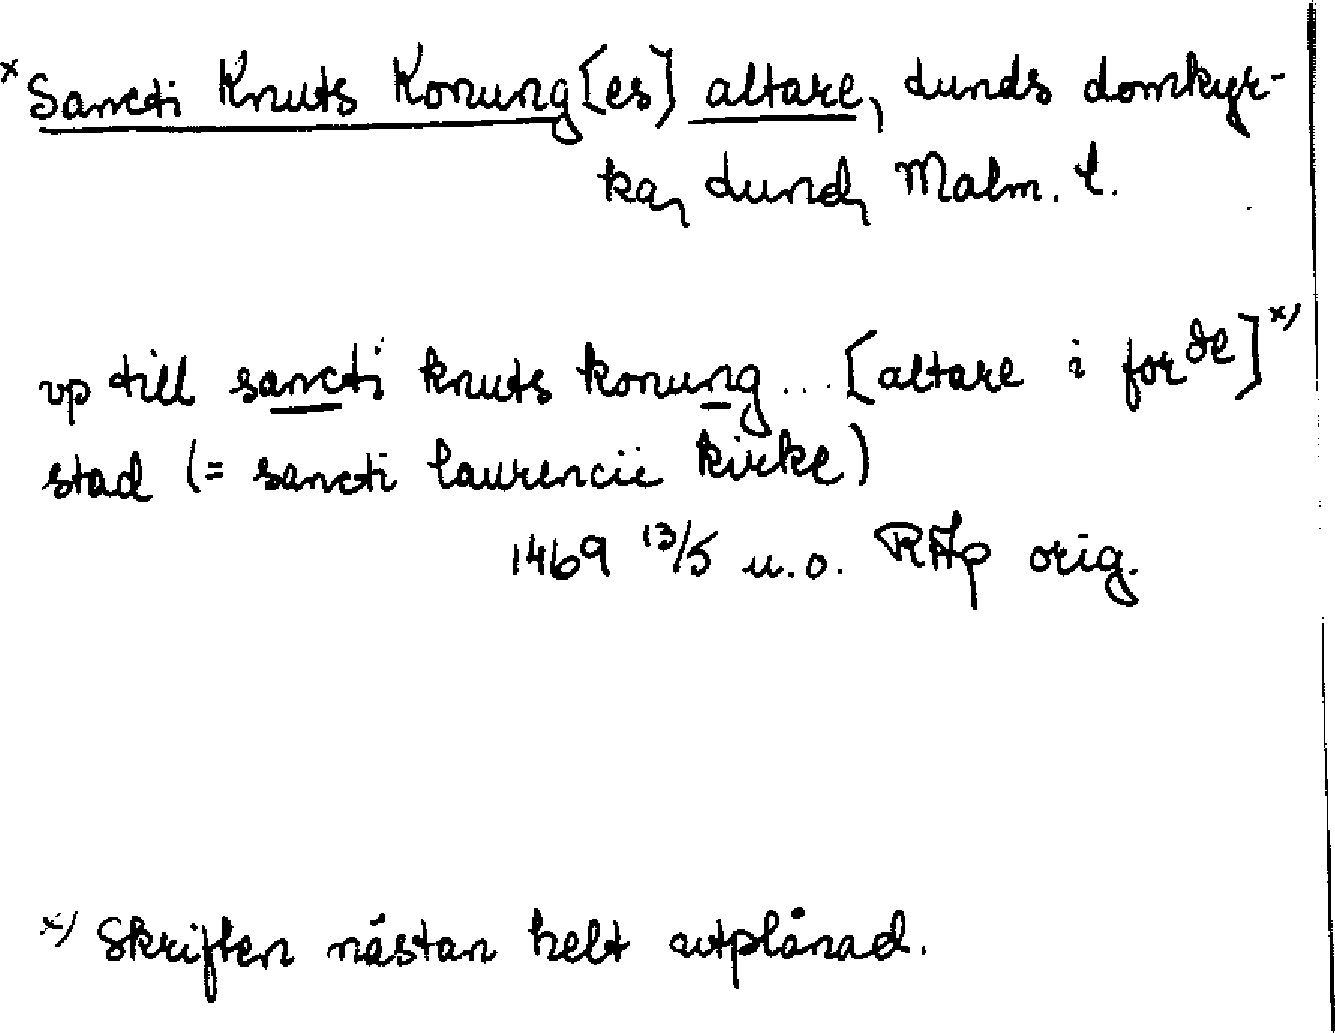 x Sancti Knuts Konung[es] altare, Lunds domkyr-
ka, Lund, Malm. l.
vp till sancti knuts konung... [altare i forde] x)
stad (= sancti laurencii kirke)
1469 13/5 u.o. RAp orig.
x) Skriften nästan helt utplånad.